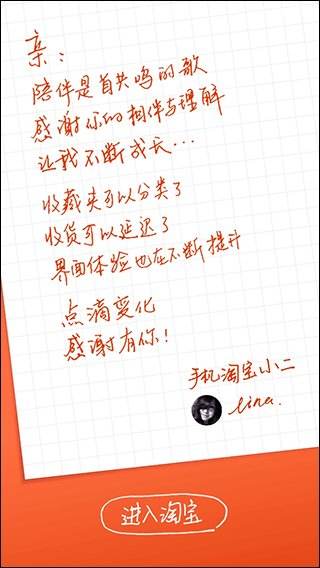 亲：
陪伴是首共鸣的歌
感谢你的相伴与理解
让我不断成长…
收藏夹可以分类了
收货可以延迟了
界面体验也在不断提升
点滴变化
感谢有你！
手机淘宝小二
lina.
进入淘宝